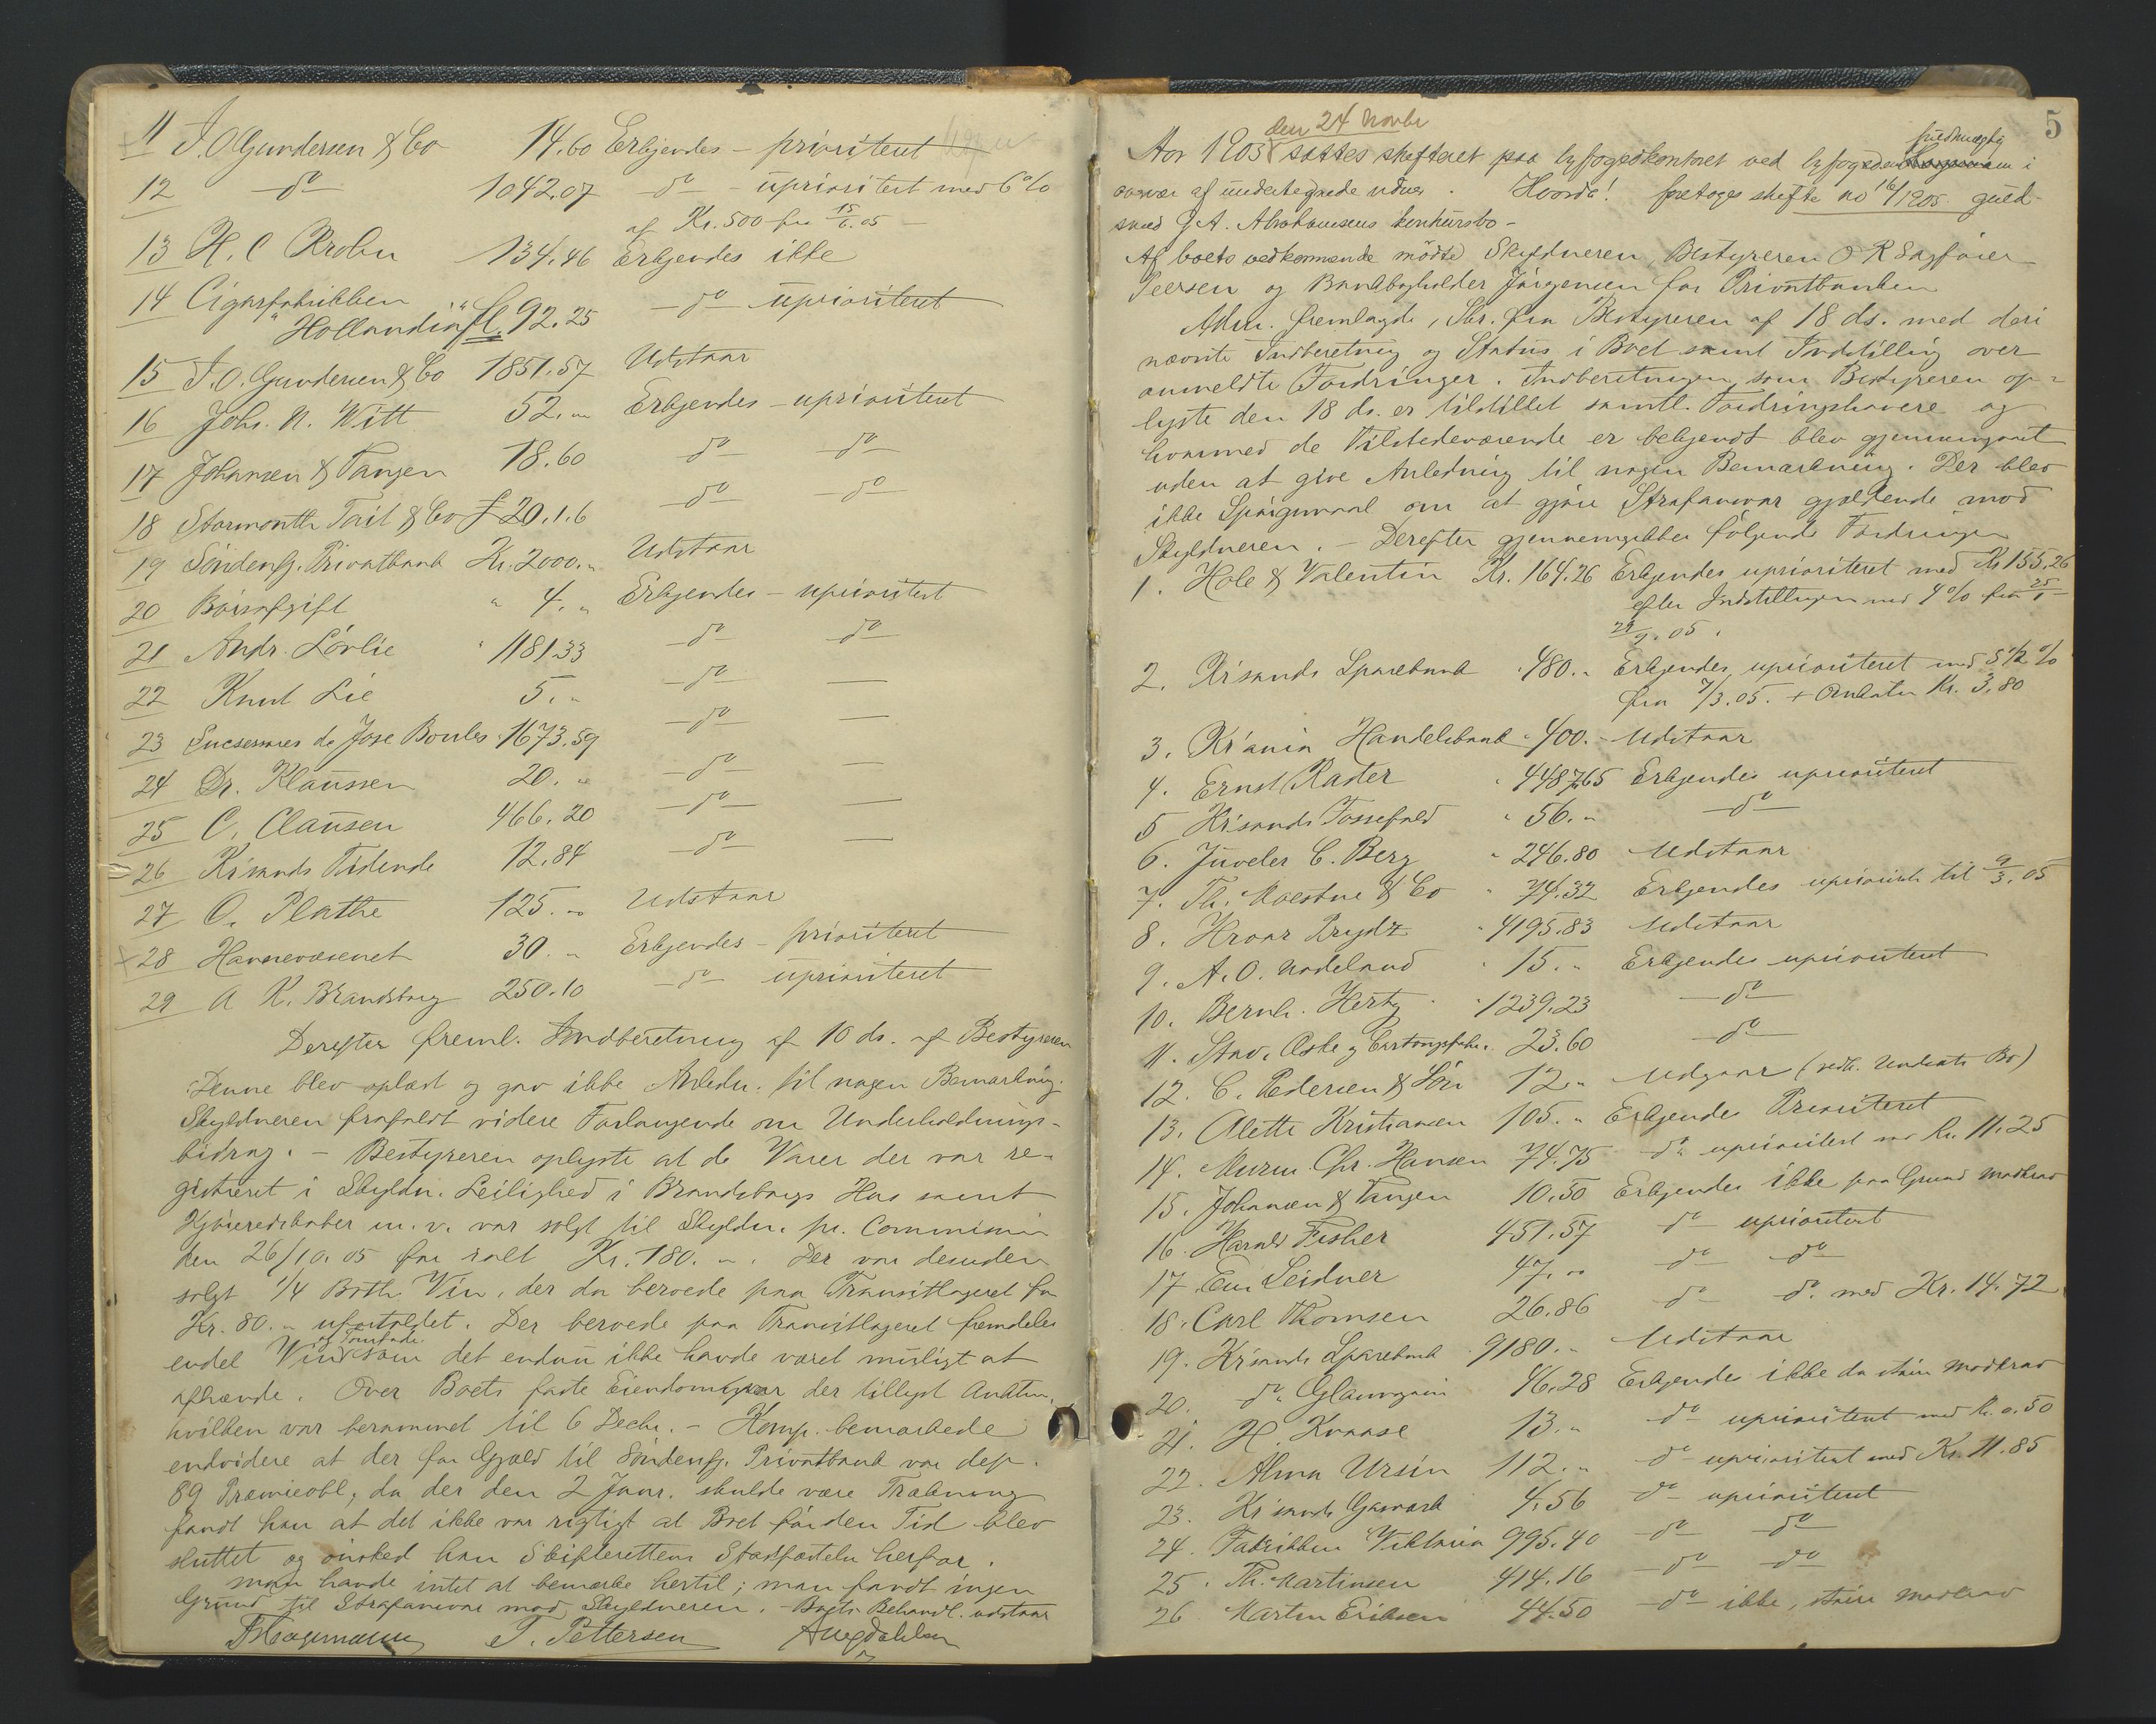 11 J. O. Gundersen & Co 14.60 Erkjendes - prioriteret
12 - do - 1042.07 - do - uprioritert med 6%
af Kr. 500 fra 15/6.05 -
13 H. C. Krohn 134.46 Erkjendes ikke
14 Cigarfabrikken
"Hollandia" fl. 92.25 - do - uprioriteret
15 J. O. Gundersen & Co 1851.57 Udstaar
16 Johs. N. Witt 52. " Erkjendes - uprioriteret
17 Johansen & Tangen 18.60 - do - - do -
18 Stormonth Tait & Co £ 20.1.6 - do - - do -
19 Söndenfj. Privatbank Kr. 2000. " Udstaar
20 Börsafgift " 4. " Erkjendes - uprioriteret
21 Andr. Lövlie " 1181.33 - do - do -
22 Knut Lie 5. " - do -
23 Sucesores de Jose Boules 1673.59 - do -
24 Dr. Klaussen 20. " - do -
25 C. Clausen 466.20 - do -
26 Kr'sands Tidende 12.84 - do -
27 O. Plathe 125. " Udstaar
28 Havnevæsenet 30. " Erkjendes - prioriteret
29 A K. Brandsborg 250.10 - do - uprioriteret
Derefter freml. Indberetning af 10 ds. af Bestyreren
Denne blev oplæst og gav ikke Anledn. til nogen Bemærkning.
Skyldneren frafaldt videre Forlangende om Underholdnings-
bidrag. - Bestyreren oplyste at de Varer der var re-
gistreret i Skyldn. Leilighed i Brandsborgs Hus samt
Kjöreredskaber m. v. var solgt til Skyldn. pr. Commission
den 26/10.05 for ialt Kr. 180. - . Der var desuden
solgt 1/4 Both Vin, der da beroede paa Transitlageret for
Kr. 80. - ufortoldet. Der beroede paa Transitlageret fremdeles
endel Vin og Tomfade som det endnu ikke havde været muligt at
afhænde. Over Boets faste Eiendom var der tillyst Auktion,
hvilken var berammet til 6 Decbr. - Komp. bemærkede
endvidere at der for Gjæld til Söndenfj. Privatbank var dep.
89 Præmieobl, da der den 2 Janr. skulde være Trækning
fandt han at det ikke var rigtigt at Boet för den Tid blev
sluttet og önsked han Skifterettens Stadfæstelse herfor.
man havde intet at bemærke hertil; man fandt ingen
Grund til Strafansvar mod Skyldneren. - Boets Behandl. udstaar
Hagemann T. Pettersen A Ugdahlen
5
Aar 1905 den 24 Novbr sattes skifteret paa byfogedkontoret ved byfogedens fuldmægtig i
nærvær af undertegnede vidner. Hvorda! foretoges skifte no 16/1905 guld-
smed J. A. Abrahamsens konkursbo -
Af boets vedkommende mödte Skyldneren, Bestyreren O R Sagförer
Peersen og Bankbogholder Jörgensen for Privatbanken
Adm. fremlagde, Skr. fra Bestyreren af 18 ds. med deri
nævnte Indberetning og Status i Boet samt Indstilling over
anmeldte Fordringer. Indberetningen, som Bestyreren op-
lyste den 18 ds. er tilstillet samtl. Fordringshavere og
hvormed de Tilstedeværende er bekjendt blev gjennemgaaet
uden at give Anledning til nogen Bemærkning. Der blev
ikke Spörgsmaal om at gjöre Strafansvar gjældende mod
Skyldneren. - Derefter gjennemgikkes fölgende Fordringer
1. Hole & Valentin Kr. 164.26 Erkjendes uprioriteret med Kr 155.26
efter Indstillingen med 4% fra 25/1 -
29/9.05.
2. Kr'sands Sparebank " 480. " Erkjendes uprioriteret med 5 1/2 %
fra 7/3.05. + Omkostn Kr. 3,80
3. Kr'ania Handelsbank " 400. - Udstaar
4. Ernst Rader " 4487.65 Erkjendes uprioriteret
5 Kr'sands Fossefald " 56. " - do -
6. Juveler C. Berg " 246.80 Udstaar
7. Th. Moestue & Co " 74.32 Erkjendes uprioriteret til 9/3.05
8. Hroar Prydz " 4195.83 Udstaar
9. A. O. Nodeland " 15. " Erkjendes uprioriteret
10. Bernh. Hertz " 1239.23 - do -
11. Stav. Æske og Cartonfabr. 23.60 - do -
12. C. Pedersen & Sön 12 " Udgaar
13. Alette Kristiansen 105. " Erkjendes Prioriteret
14. Murm. Chr. Hansen 74.75 do uprioritert med Kr. 11.25
15. Johansen & Tangen 10.50 Erkjendes ikke paa Grund modkrav
16. Harald Fisher 451.57 do uprioritert
17. Em. Leidner 47. " do do
18. Carl Thomsen 26.86 do do. med Kr. 14.72
19. Kr'sands Sparebank 9180. " Udstaar
20. do. Glasmagasin 46.28 Erkjendes ikke da större modkrav
21. H. Knaase 13. " do uprioritert med Kr. 0.50
22. Alma Ursin 112. " do uprioritert med Kr. 11.85
23. Kr'sands Gasværk 4.56 do uprioriteret
24. Fabrikken Viktoria 995.40 - do - - do -
25. Th. Martinsen 414.16 - do - - do -
26 Martin Eriksen 44.50 - do - ikke, större modkrav